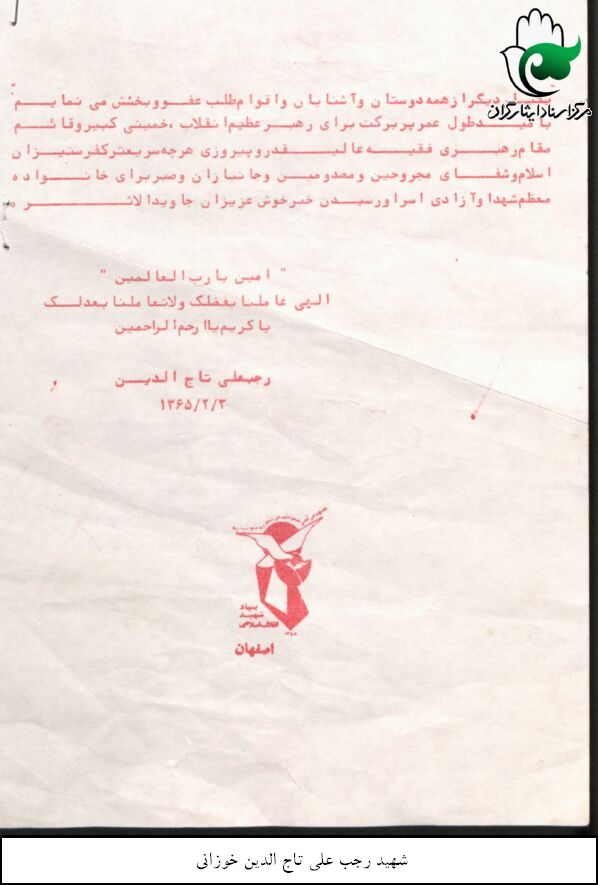 مرکز اسناد ایثارگران
دیگر از همه دوستان و آشنایان و اقوام طلب عفو و بخشش می نمایم
با امید طول عمر پر برکت برای رهبر عظیم انقلاب ، خمینی کبیر و قائم
مقام رهبری فقیه عالیقدر و پیروزی هرچه سریعتر کفرستیزان
اسلام و شفای مجروحین و مصدومین و جانبازان و صبر برای خانواده
معظم شهدا و آزادی اسرا و رسیدن خبر خوش عزیزان جاویدالاثر .
" امین یا رب العالمین "
الهی عاملنا بفضلک ولاتعاملنا بعدلک
یا کریم یا ارحم الراحمین
رجبعلی تاج الدین
۱۳۶۵/۲/۳
بنیاد
شهید
انقلاب اسلامی
اصفهان
شهید رجب علی تاج الدین خوزانی